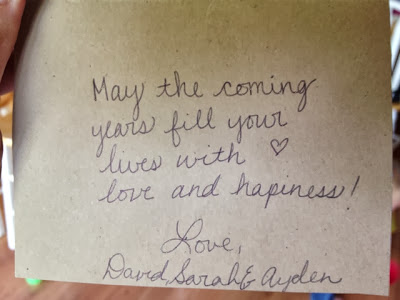 May the coming
years fill your
lives with ♡
love and hapiness!
Love,
David, Sarah & Ayden